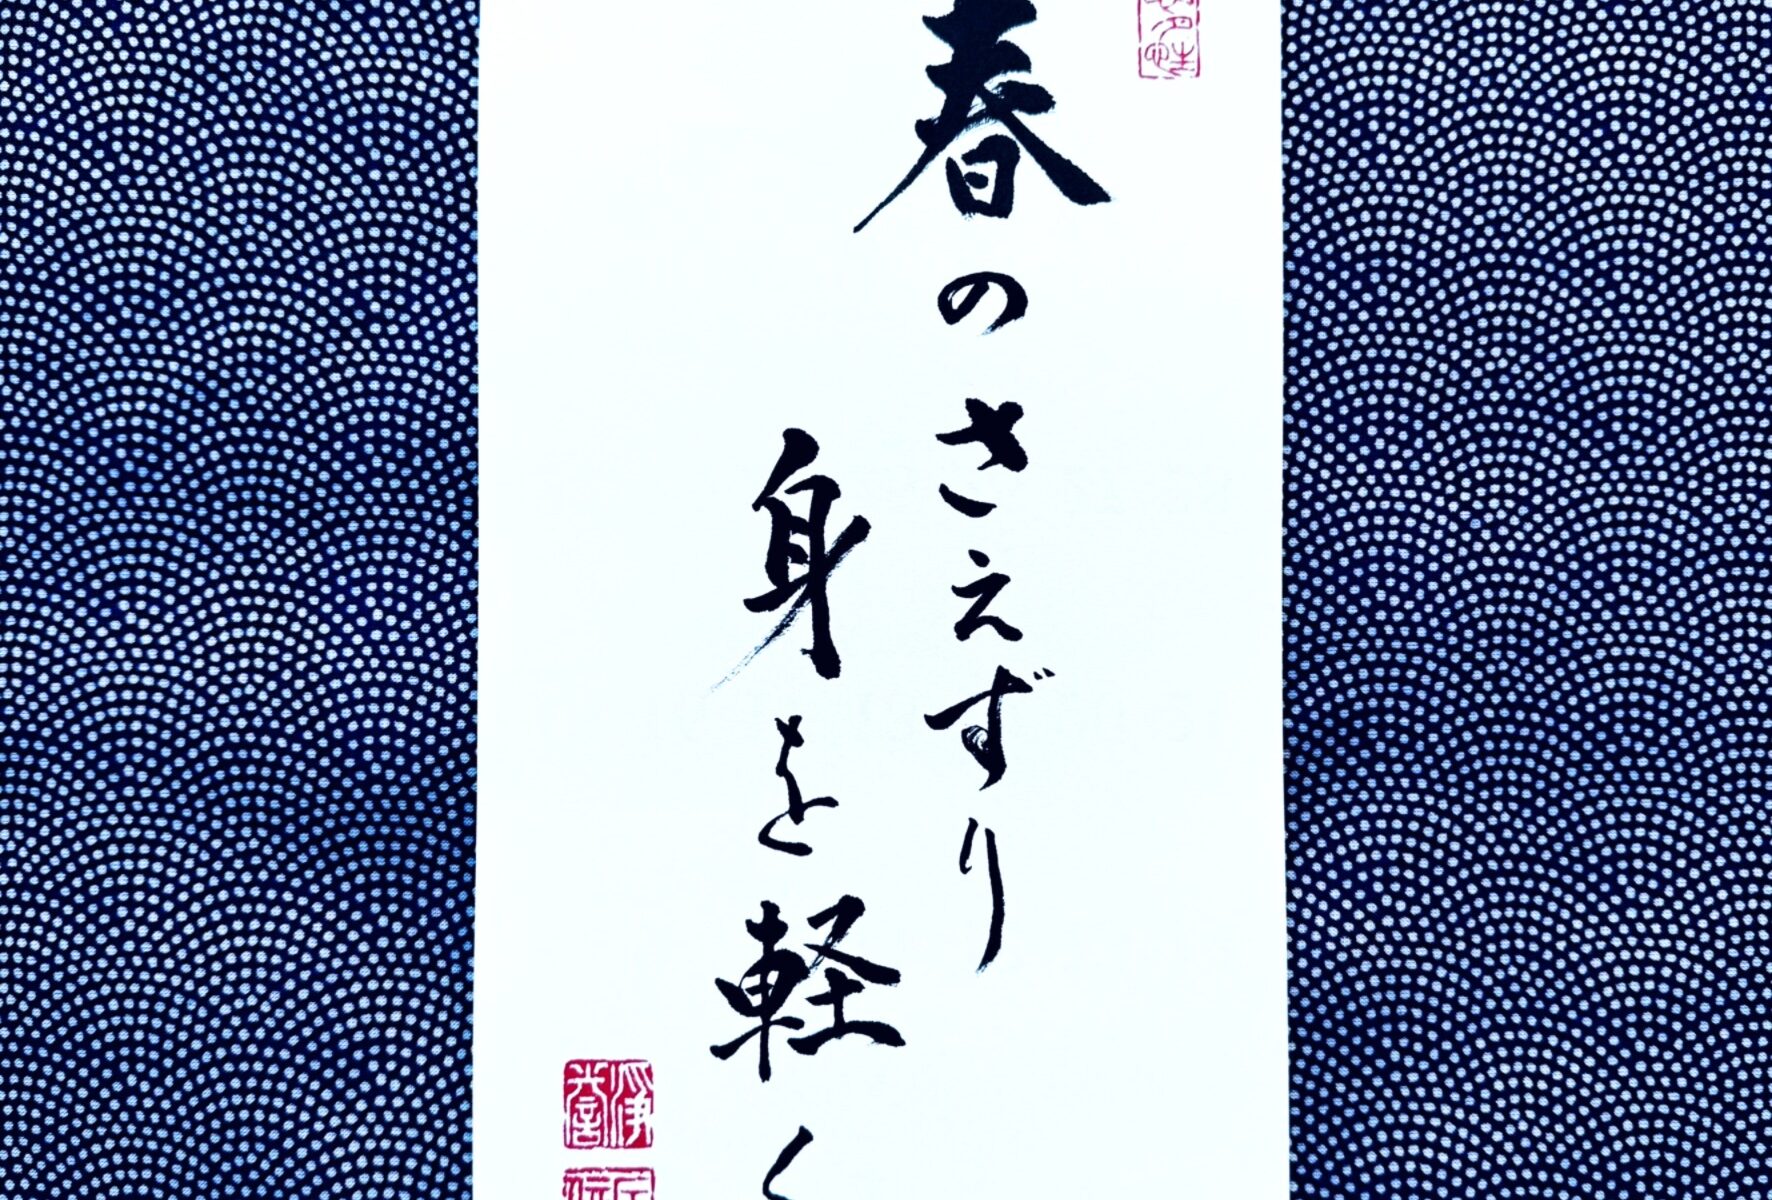 春のさえずり
身を軽く